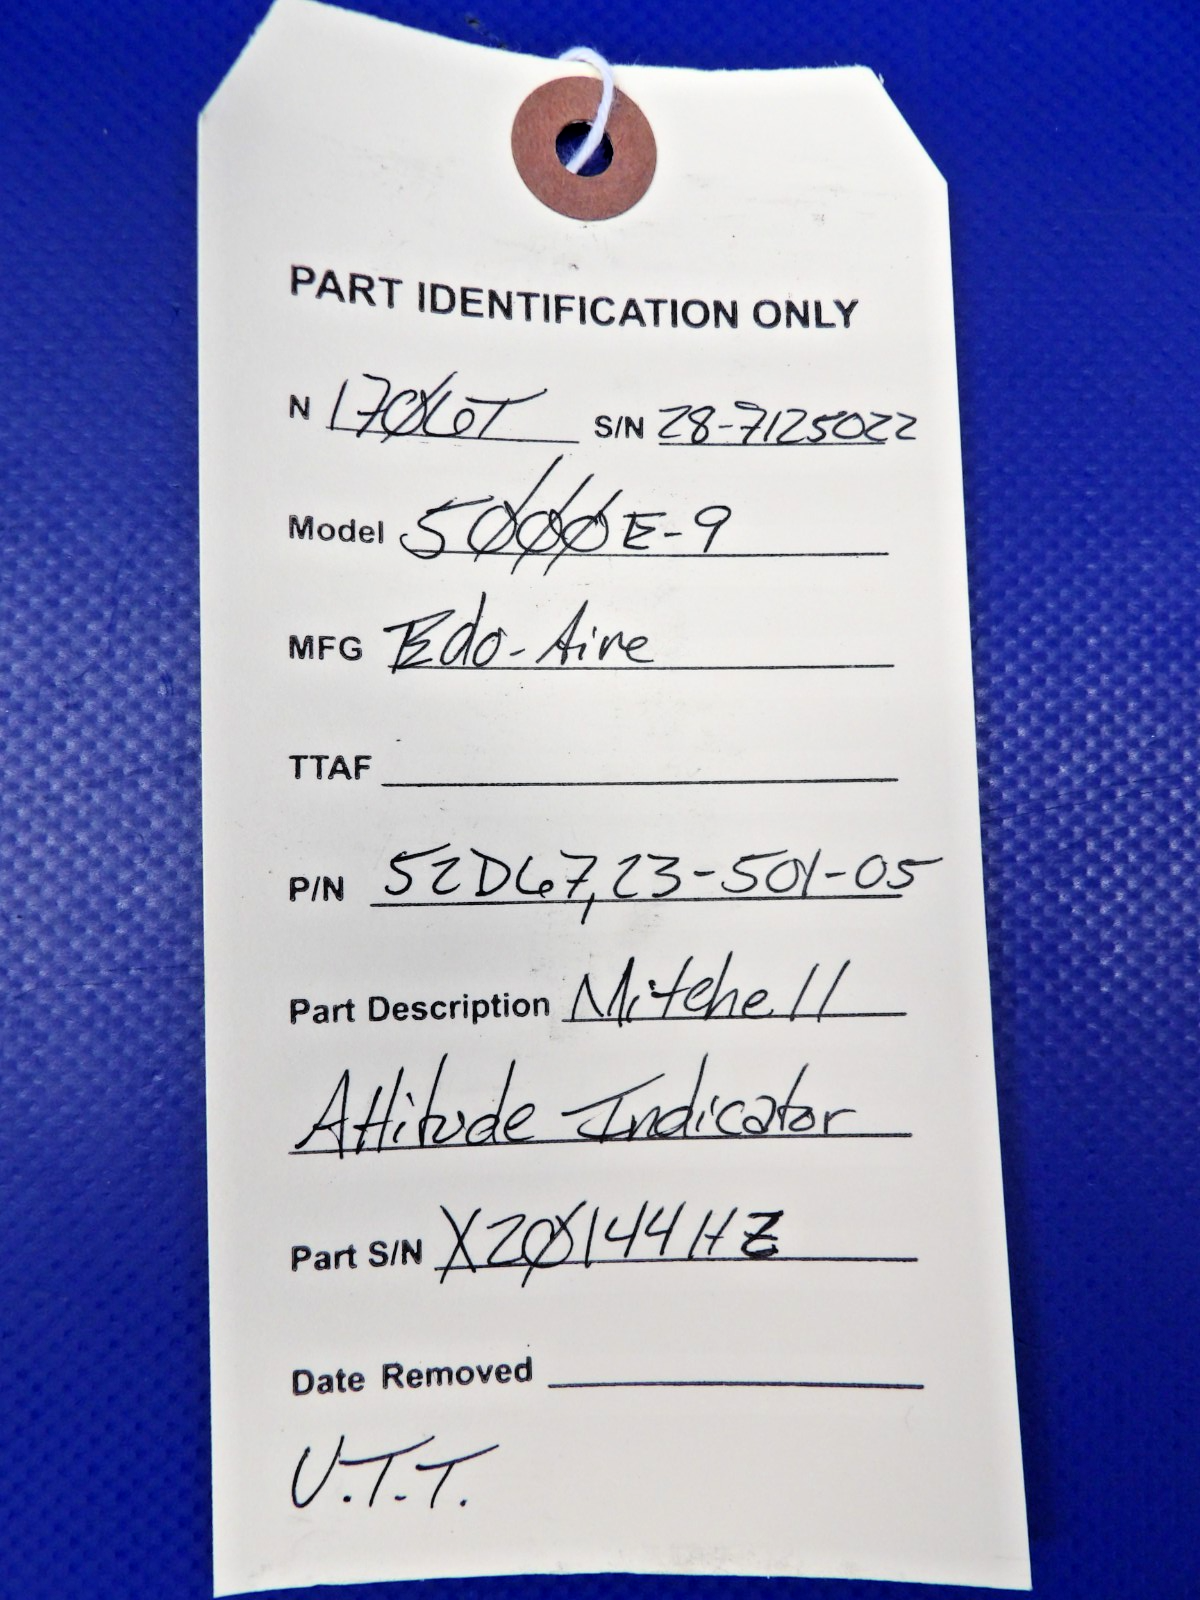 PART IDENTIFICATION ONLY
N 1706T S/N 28-7125022
Model 5000E-9
MFG Edo-Aire
TTAF
P/N 52D67,23-501-05
Part Description Mitchell
Attitude Indicator
Part S/N X20144HZ
Date Removed
U.T.T.